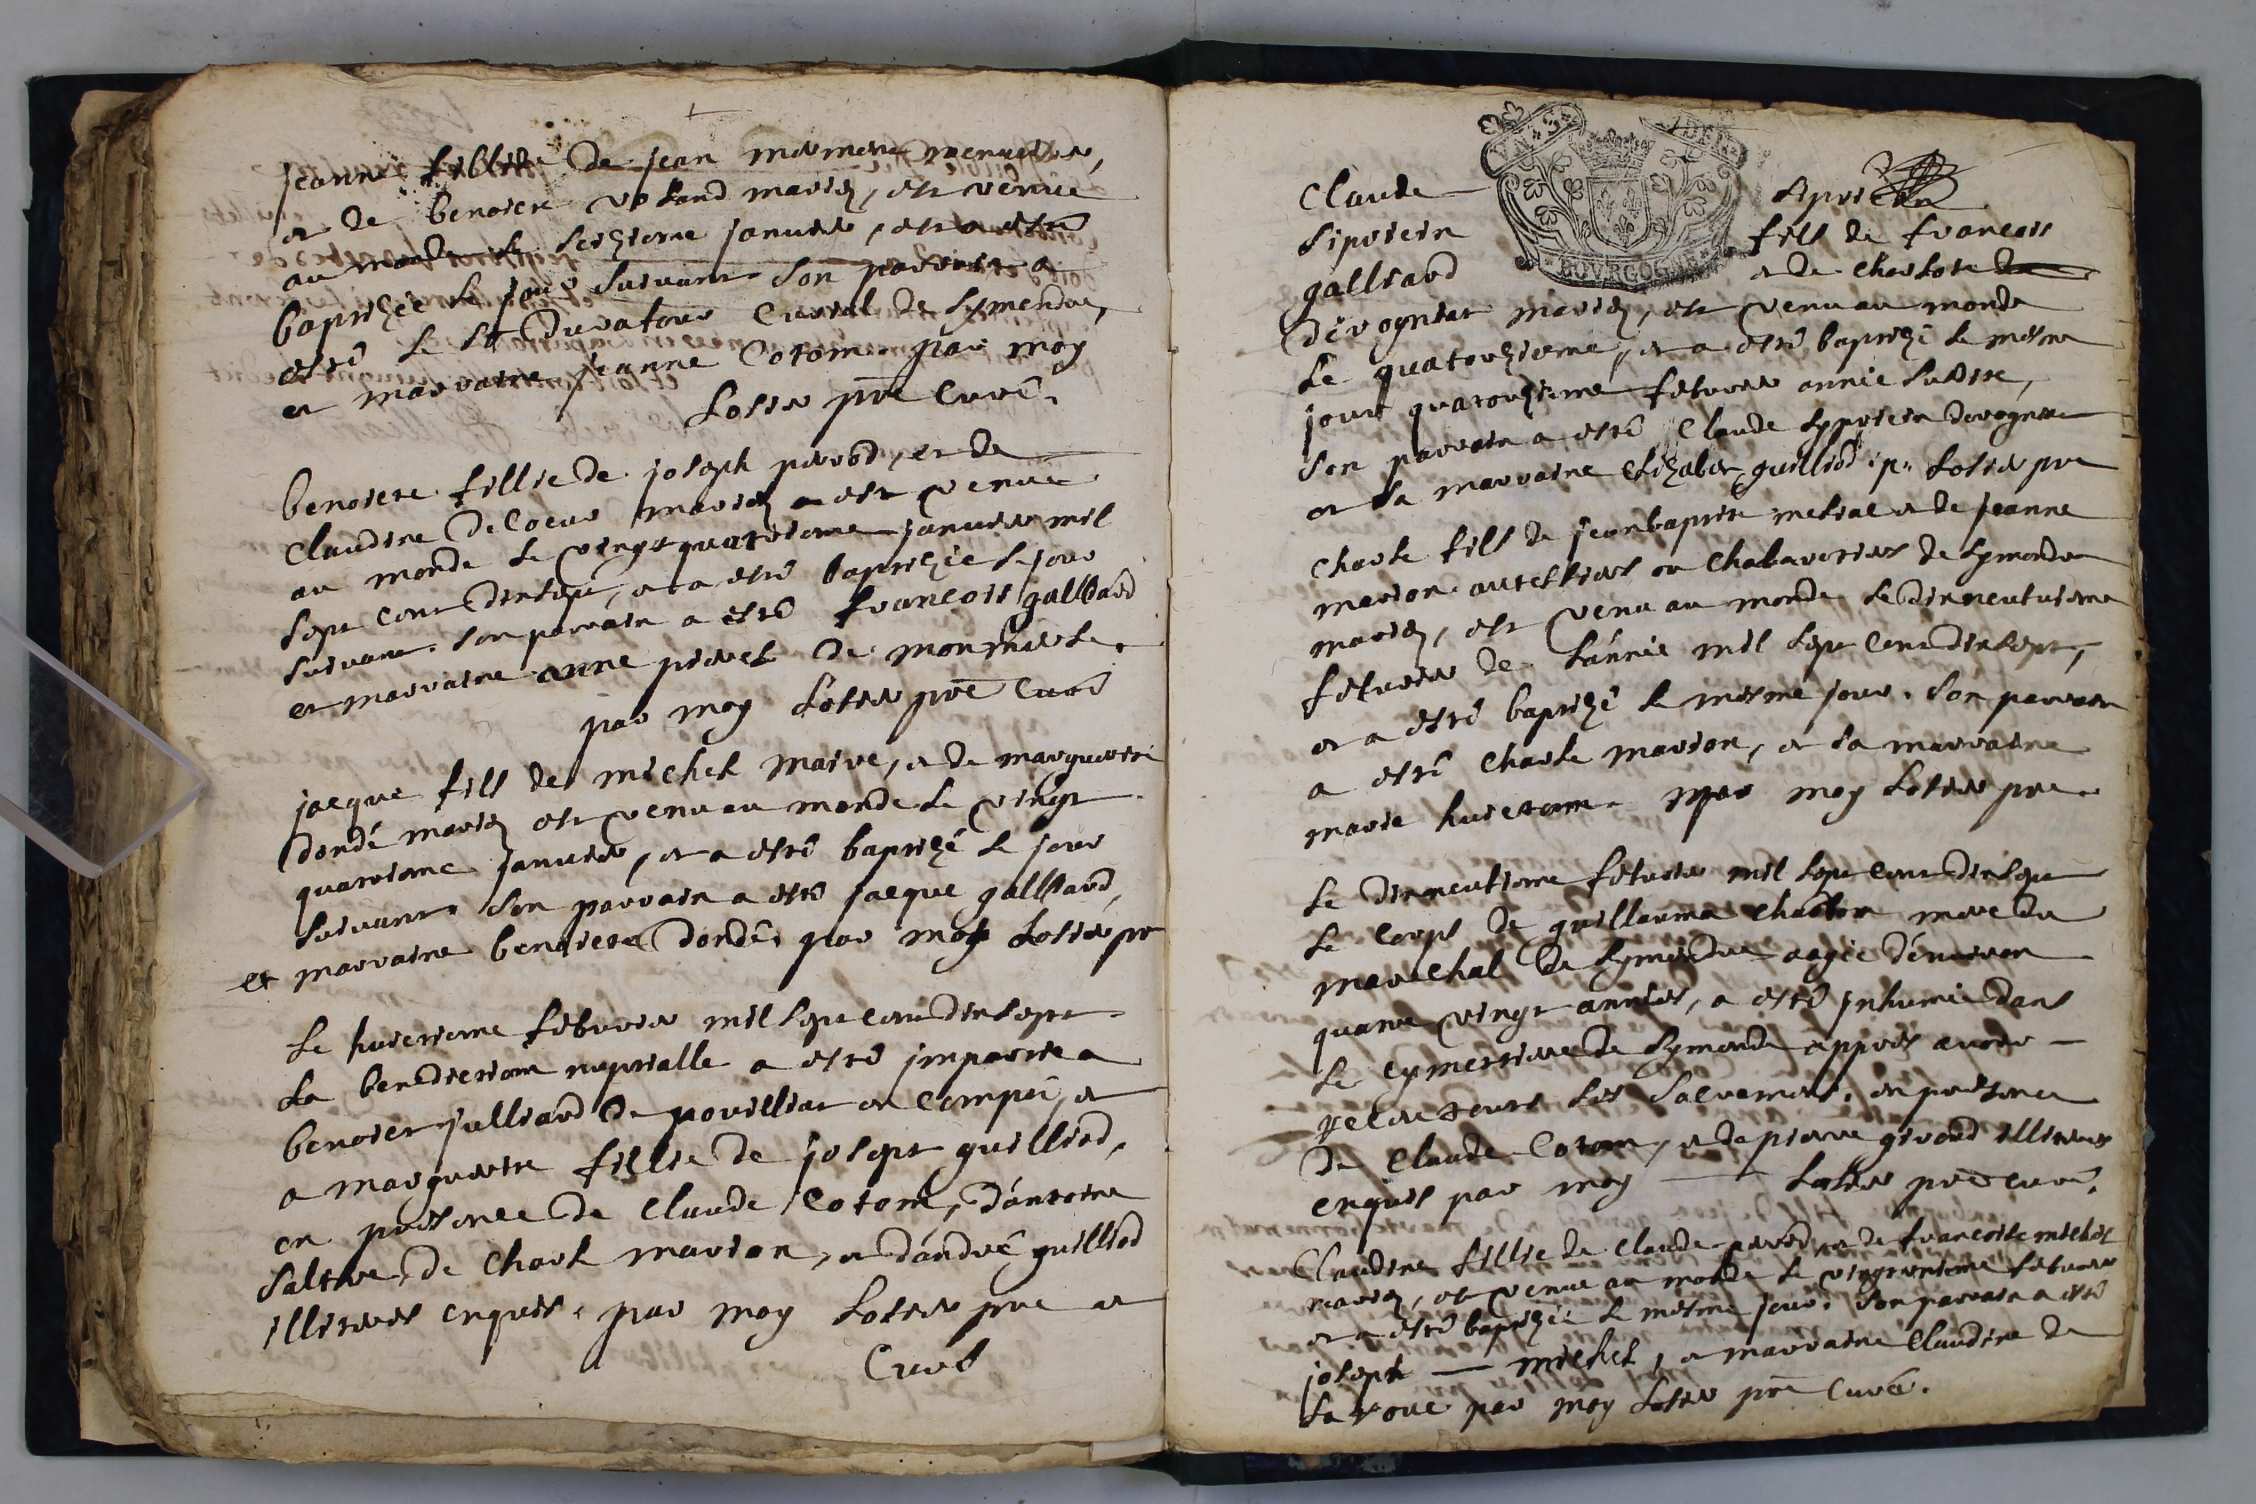 jeanne fillie de jean
et de benoiete voland mariez, est venue
au monde le seizieme janvier, et a esté
baptizée le jour suivant son parrain a
esté le Sr Duratour Curial de Symendre,
et marraine jeanne Cotom. par moy
Losier pre Curé.
benoiete fillie de joseph perrod, et de
Claudine Decoeur mariez est venue
au monde le vingt quatrieme janvier mil
sept cent dixsept, et a esté baptizée le jour
suivant. son parrain a esté francois galliard
et marraine anne de
par moy Losier pre Curé
jacque fils de michel maire, et de marguerite
dondé mariez est venu au monde le vingt
quatrieme janvier, et a esté baptizé le jour
suivant. son parrain a esté jacque galliard,
et marraine benoiete dondé. par moy Losier pre
Le huictieme febvrier mil sept cent dixsept
La benedictiom nuptialle a esté impartie a
benoiet julliard de povilliat en Compei, et
a marguerite fillie de josept guilliod,
en presence de Claude Cotom, d'antoine
de Charle marion, et d'andré guilliod
illiteres enquis. par moy Losier pre et
Curé
Claude
Sipriein Siprien
galliard fils de francois
et de Charlote
divogniat mariez, est venu au monde
Le quatorzieme, et a esté baptizé le mesme
jour quatorzieme febvrier année susdite,
son parrain a esté Claude Sypriein divogniat
et sa marraine Elizabet guilliod. p. Losier pre
Charle fils de jeanbaptiste et de jeanne
marion en Chalavorires de Symondre
mariez, est venu au monde le dixneufvieme
febvrier de l'année mil sept cent dixsept,
et a esté baptizé le mesme jour. son parrain
a esté Charle marion, et sa marraine
marie par moy Losier pre.
Le dixneufieme febvrier mil sept cent dixsept
Le Corps de guillauma mere du
marechal de Symendre aagée d'environ
quatre vingt années, a esté inhumée dans
Le Cymettiere de Symondre appres avoir
receu tous les Sacrements. en presence
de Claude Cotom, et de pierre girard illiteres
enquis par moy Losier pre curé.
Claudine fillie de Claude perrod et de francoise
mariez, est venue au monde le febvrier
et a esté baptizée le mesme jour. son parrain a esté
joseph michel, et marraine Claudine de
La roue par moy Losier pre Curé.
BOURGOGNE